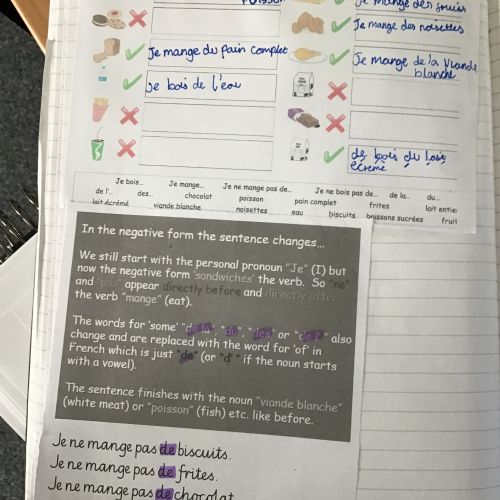 poisson
Je mange des noisettes
Je mange du pain complet
Je mange de la viande
blanche
je bois de l'eau
Je bois... Je mange... Je ne mange pas de... Je ne bois pas de... de la... du...
de l'... des... chocolat poisson pain complet frites lait entie
lait écrémé viande blanche noisettes eau biscuits boissons sucrées fruit
In the negative form the sentence changes...
We still start with the personal pronoun "Je" (I) but
now the negative form 'sandwiches' the verb. So "ne"
and "pas" appear directly before and directly after
the verb "mange" (eat).
The words for 'some' "de la", "du", "des" or "de l'" also
change and are replaced with the word for 'of' in
French which is just "de" (or "d' " if the noun starts
with a vowel).
The sentence finishes with the noun "viande blanche"
(white meat) or "poisson" (fish) etc. like before.
Je ne mange pas de biscuits.
Je ne mange pas de frites.
Je ne mange pas de chocolat.